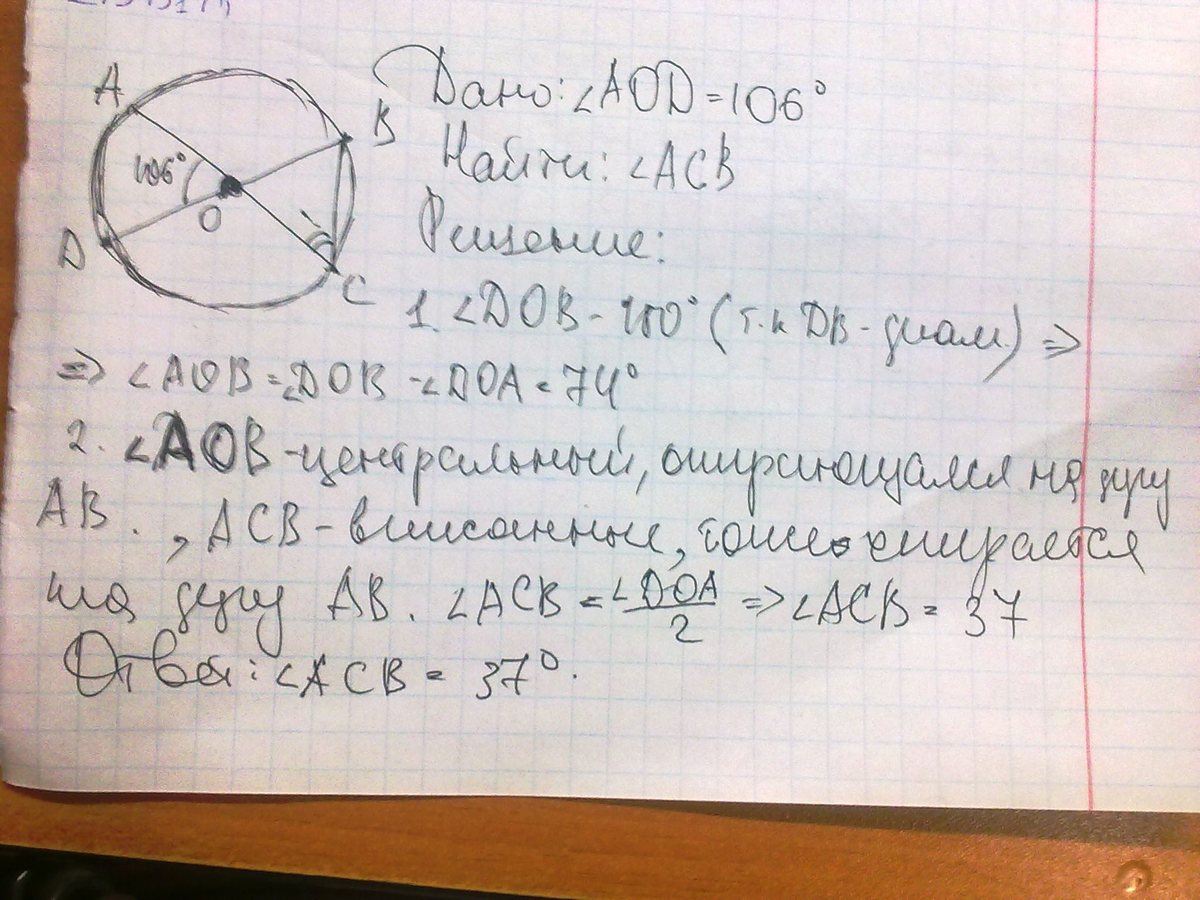 A
B
106°
O
D
C
Дано: ∠AOD = 106°
Найти: ∠ACB
Решение:
1. ∠DOB - 180° (т.к DB - диам.) =>
=> ∠AOB = ∠DOB - ∠DOA = 74°
2. ∠AOB - центральный, опирающийся на дугу
AB. , ACB - вписанные, тоже опирается
на дугу AB. ∠ACB = ∠DOA/2 => ∠ACB = 37
Ответ: ∠ACB = 37°.